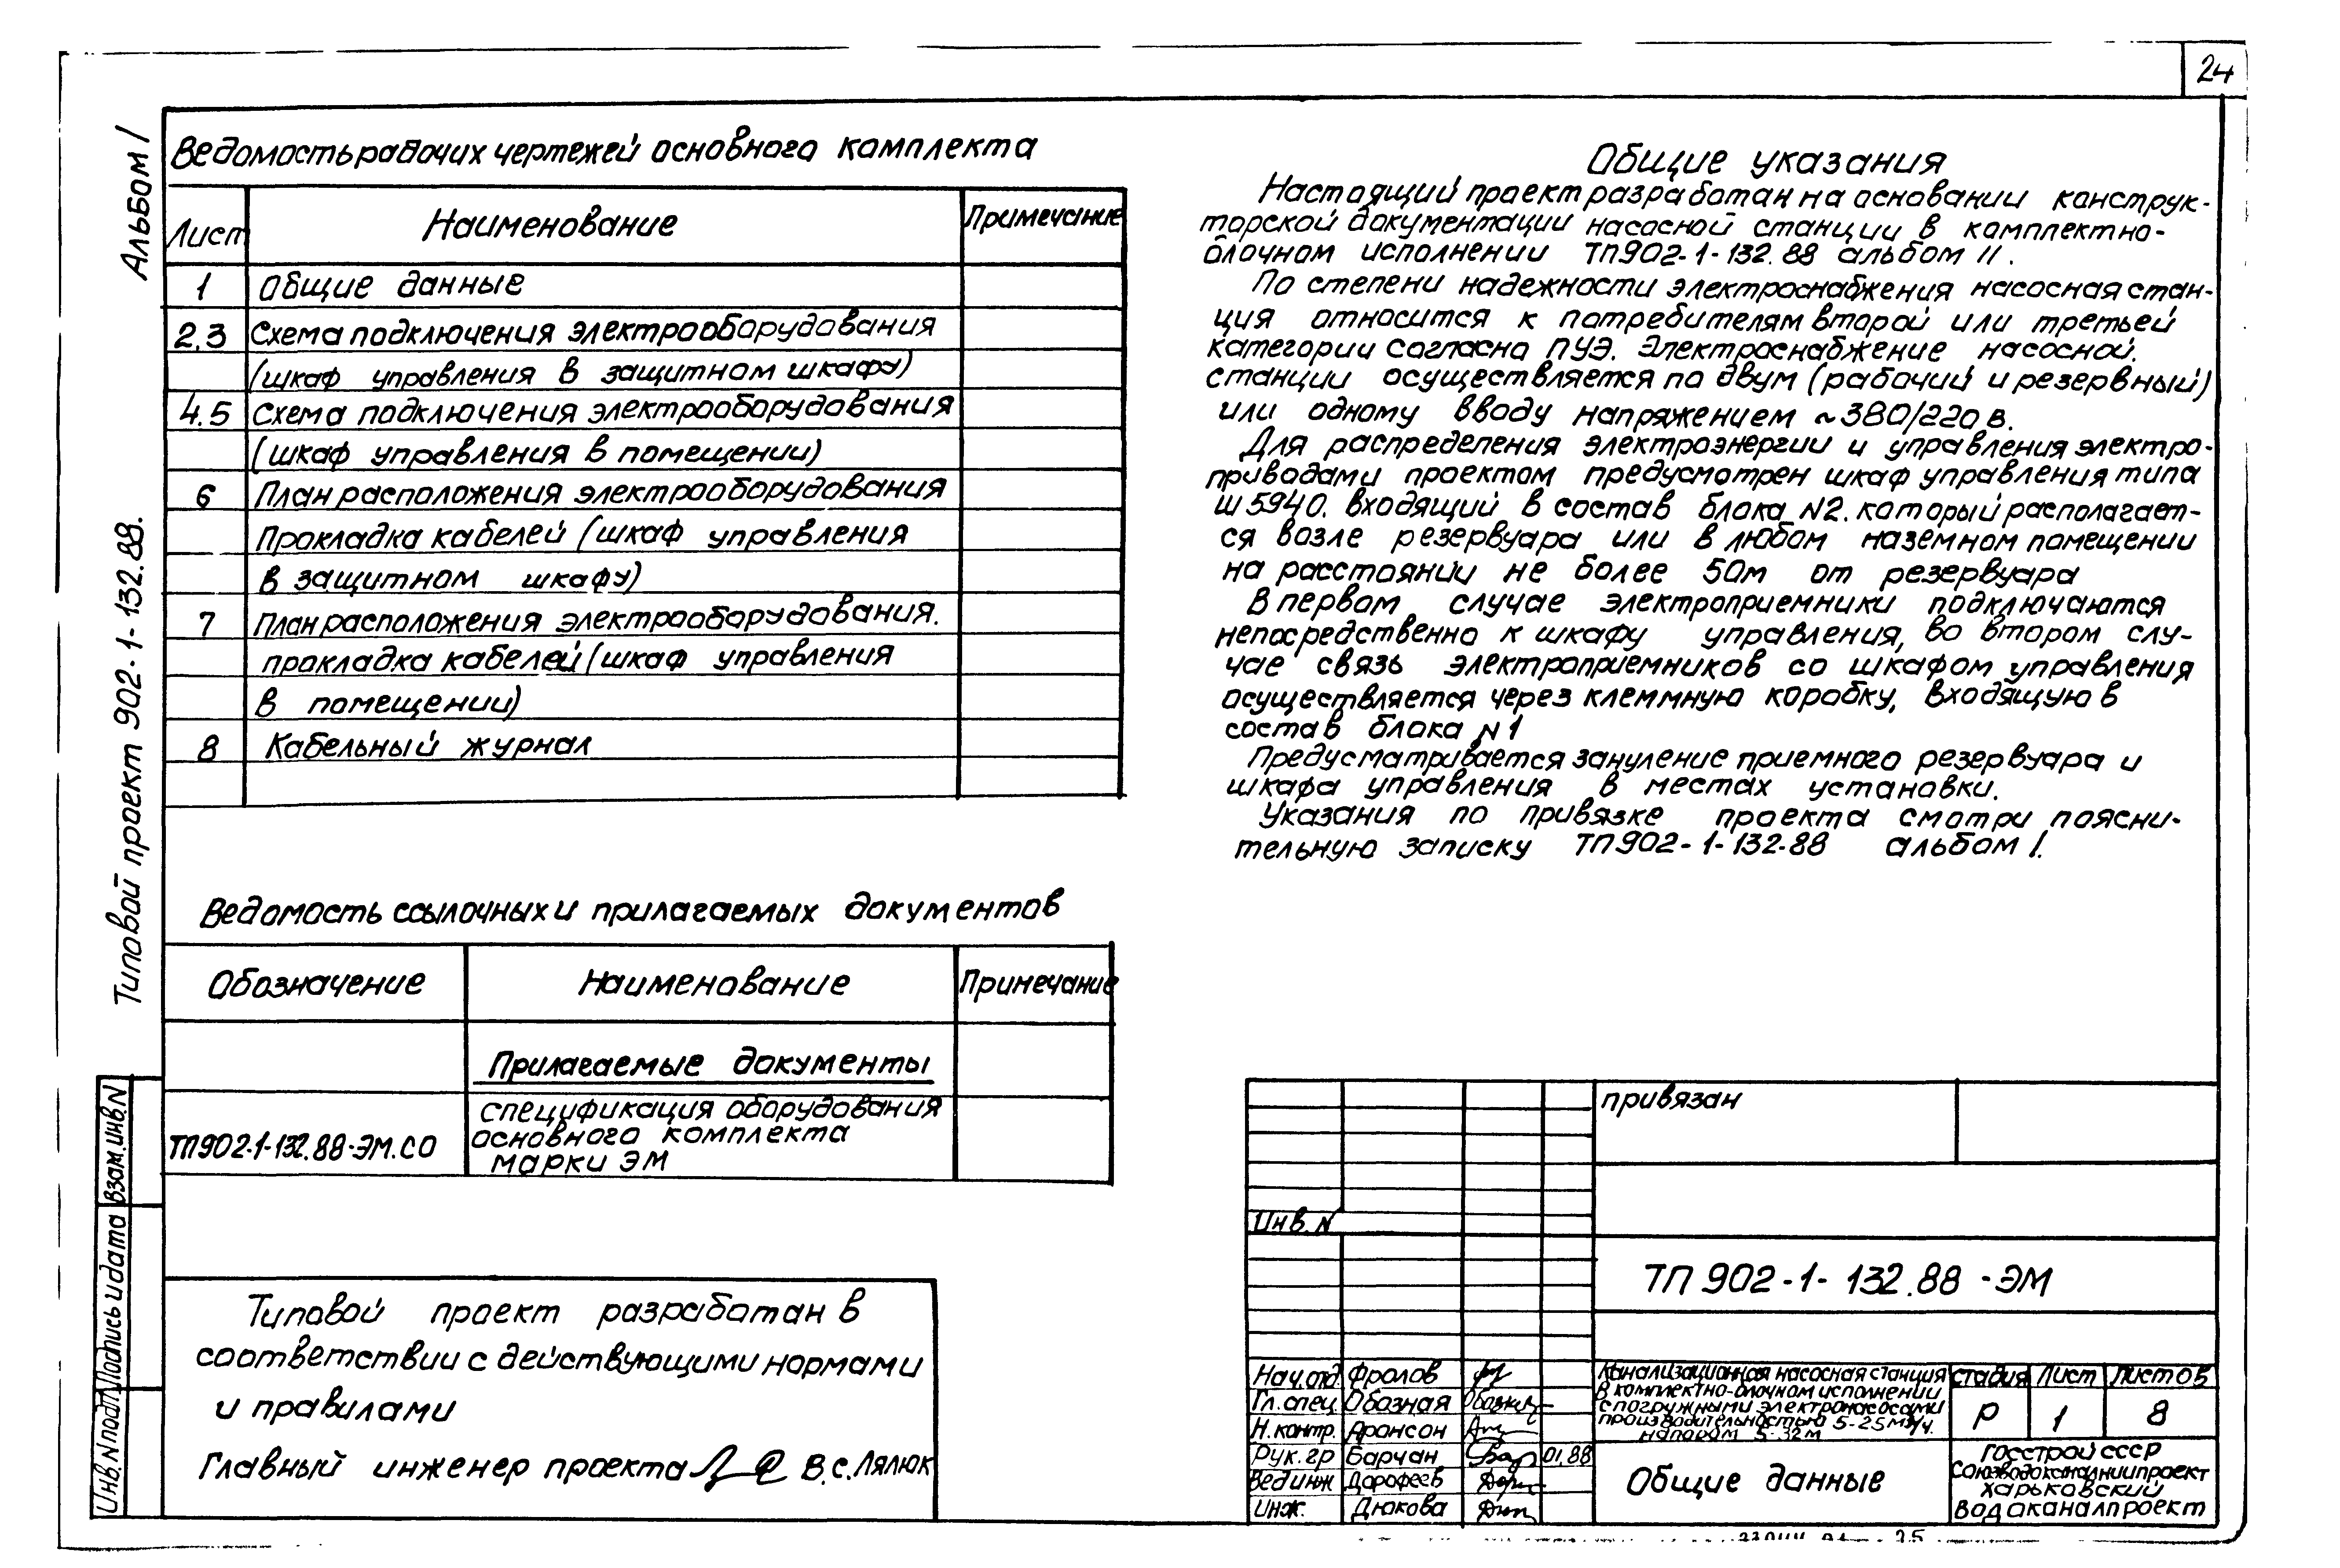 24
Альбом I
Типовой проект 902-1-132.88.
Ведомость рабочих чертежей основного комплекта
Лист Наименование Примечание
1 Общие данные
2.3 Схема подключения электрооборудования
(шкаф управления в защитном шкафу)
4.5 Схема подключения электрооборудования
(шкаф управления в помещении)
6 План расположения электрооборудования
Прокладка кабелей (шкаф управления
в защитном шкафу)
7 План расположения электрооборудования.
прокладка кабелей (шкаф управления
в помещении)
8 Кабельный журнал
Ведомость ссылочных и прилагаемых документов
Обозначение Наименование Примечание
Прилагаемые документы
спецификация оборудования
ТП902-1-132.88-ЭМ.СО основного комплекта
марки ЭМ
Типовой проект разработан в
соответствии с действующими нормами
и правилами
Главный инженер проекта В.С.Лялюк
Общие указания
Настоящий проект разработан на основании конструк-
торской документации насосной станции в комплектно-
блочном исполнении ТП902-1-132.88 альбом II.
По степени надежности электроснабжения насосная стан-
ция относится к потребителям второй или третьей
категории согласно ПУЭ. Электроснабжение насосной
станции осуществляется по двум (рабочий и резервный)
или одному вводу напряжением ~380/220в.
Для распределения электроэнергии и управления электро-
приводами проектом предусмотрен шкаф управления типа
Ш5940. входящий в состав блока N2. который располагает-
ся возле резервуара или в любом наземном помещении
на расстоянии не более 50м от резервуара
В первом случае электроприемники подключаются
непосредственно к шкафу управления, во втором слу-
чае связь электроприемников со шкафом управления
осуществляется через клеммную коробку, входящую в
состав блока N1
Предусматривается зануление приемного резервуара и
шкафа управления в местах установки.
Указания по привязке проекта смотри поясни-
тельную записку ТП902-1-132-88 альбом I.
привязан
Инв.N
ТП 902-1-132.88-ЭМ
Нач.отд. Фролов
Гл.спец. Обозная
Н.контр. Аронсон
Рук.гр Барчан 01.88
Вед инж Дорофеев
Инж. Дюкова
Канализационная насосная станция
в комплектно-блочном исполнении
с погружными электронасосами
производительностью 5-25м³/ч.
напором 5-32м
стадия Лист Листов
Р 1 8
Общие данные
Госстрой СССР
Союзводоканалниипроект
Харьковский
Водоканалпроект
Взам.инв.N
Подпись и дата
Инв.N подл.